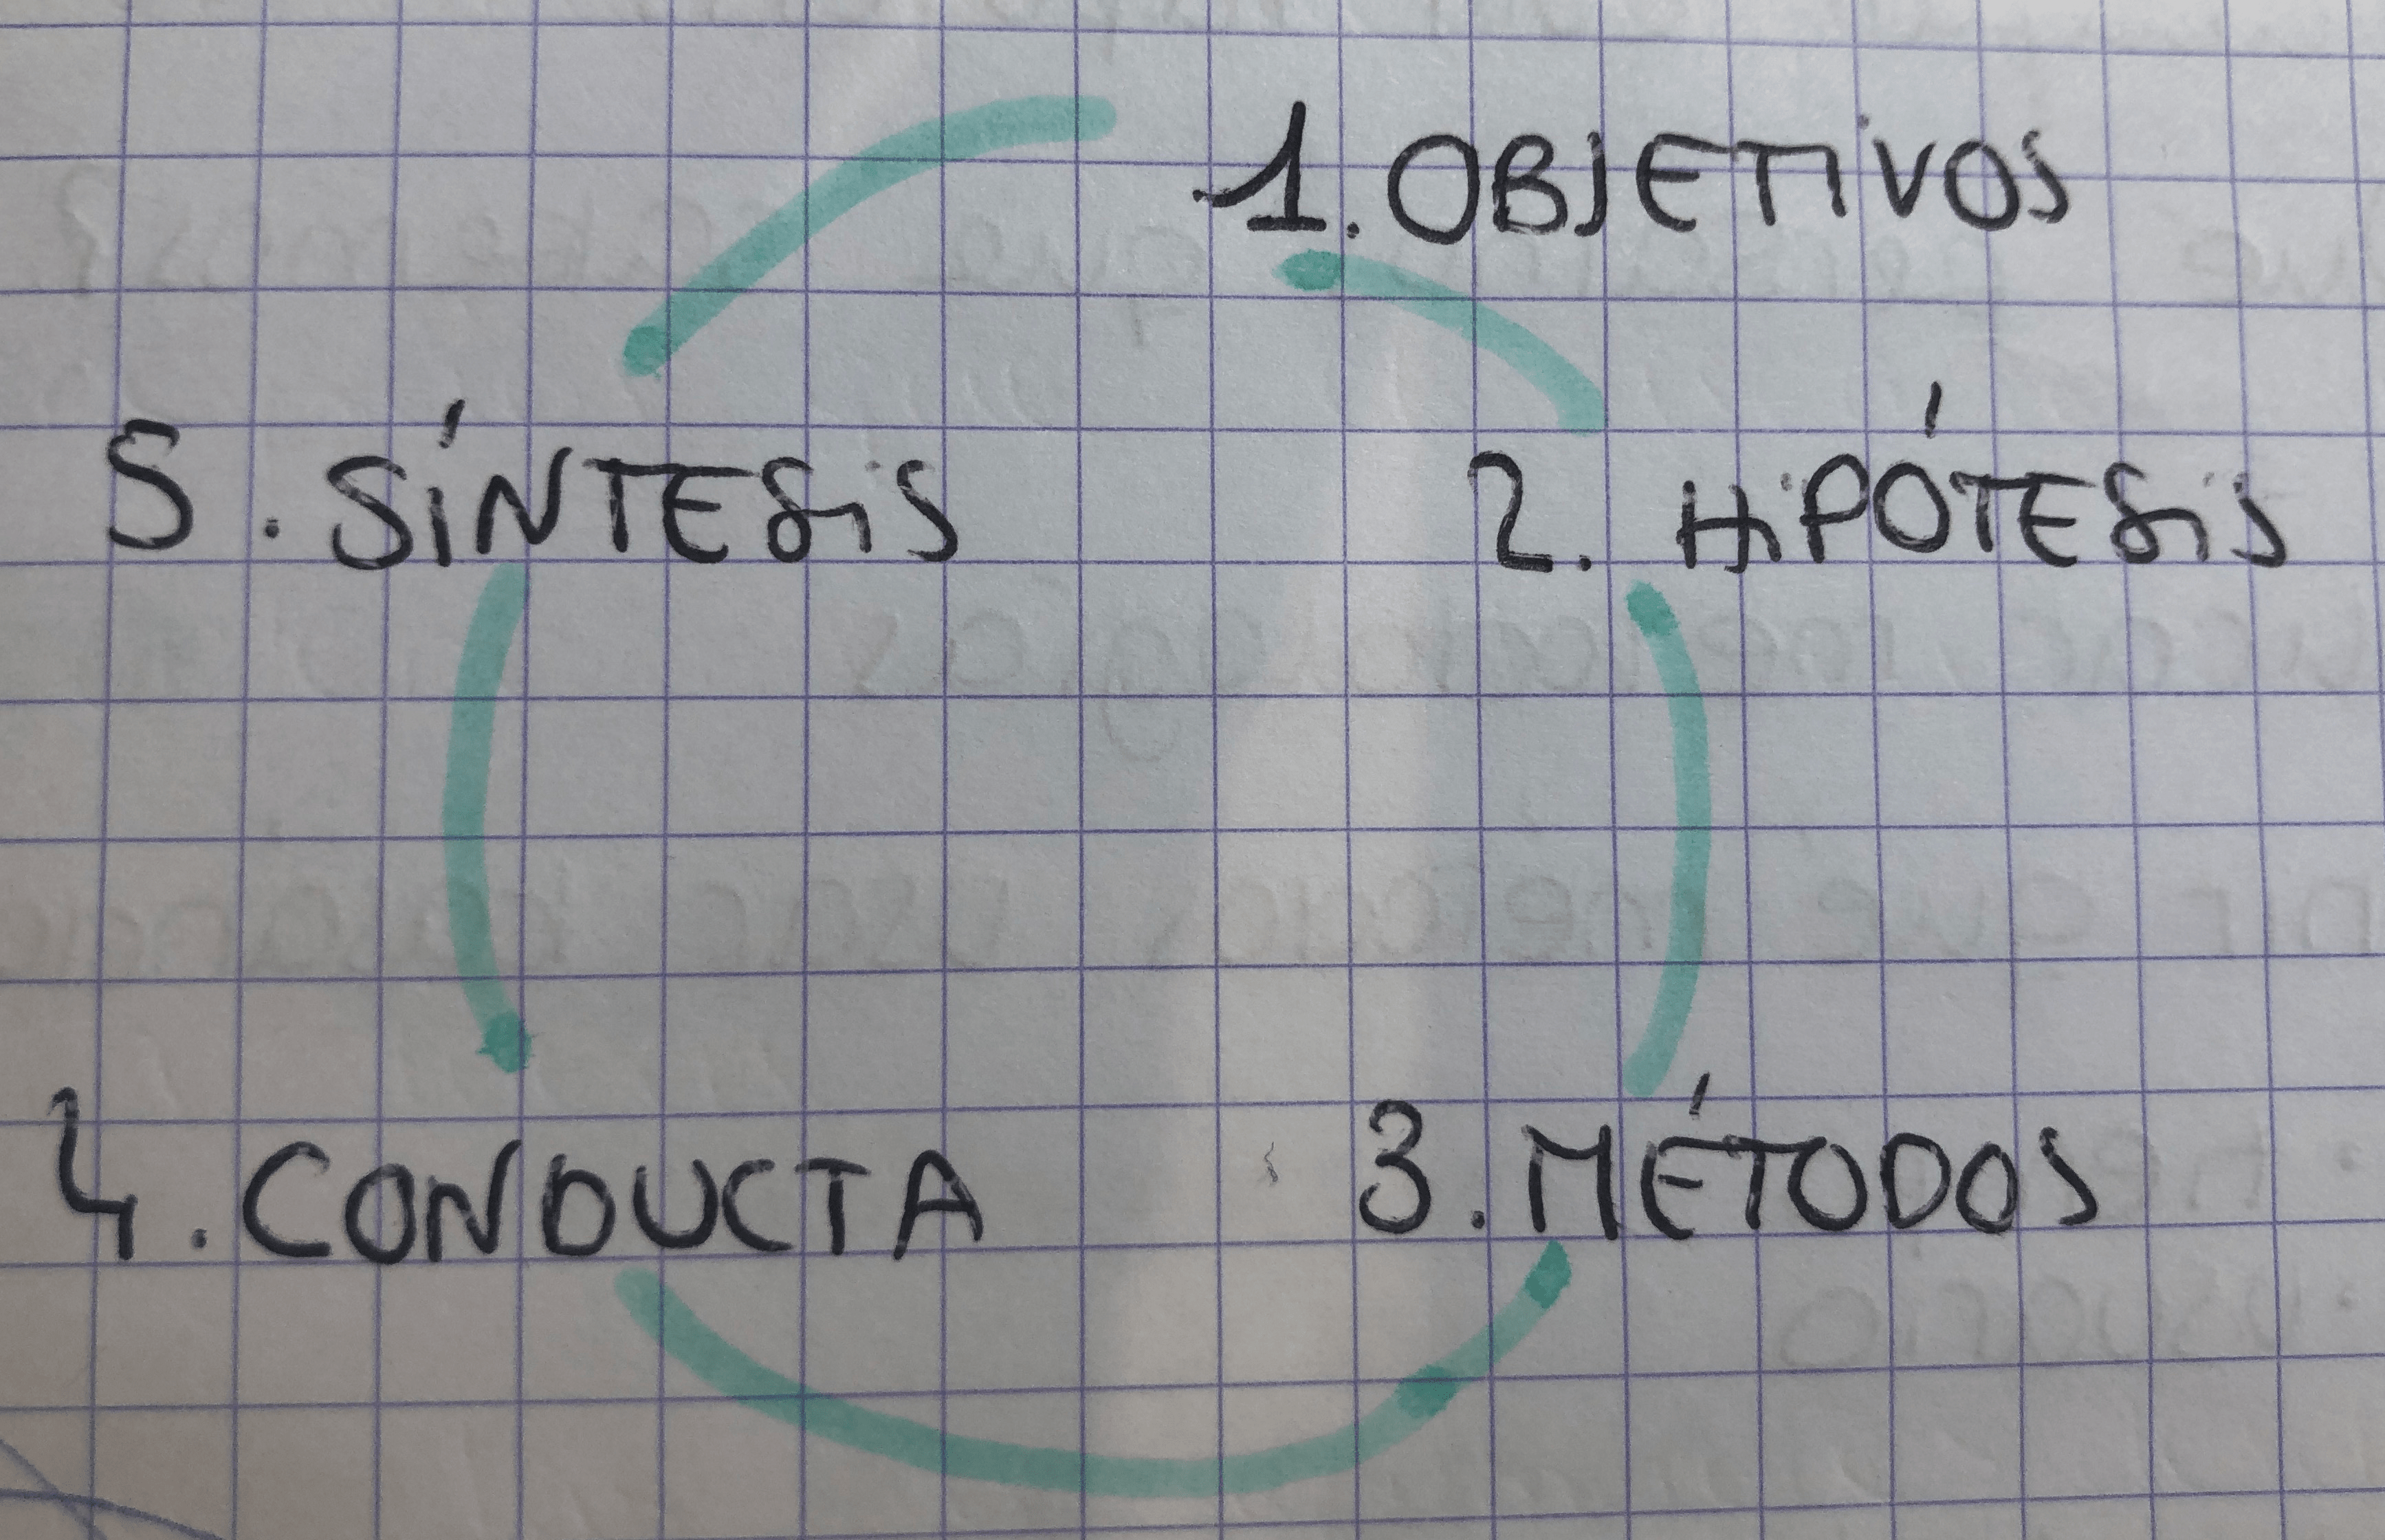 1. OBJETIVOS
2. HIPÓTESIS
3. MÉTODOS
4. CONDUCTA
5. SÍNTESIS